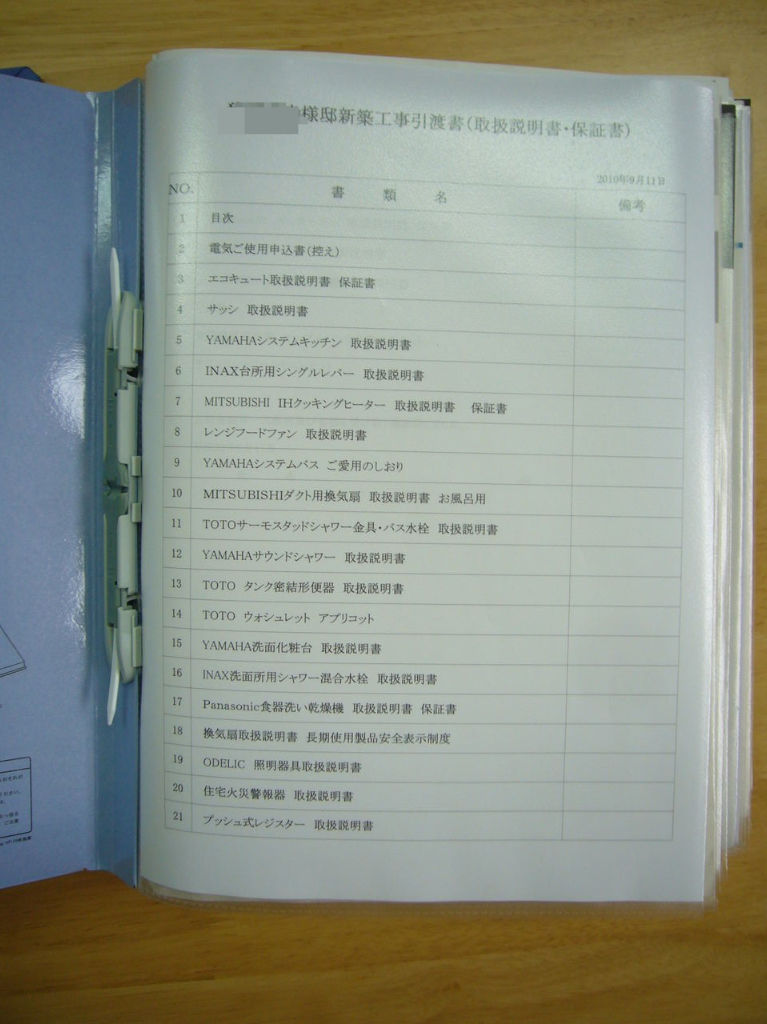 様邸新築工事引渡書(取扱説明書・保証書)
2010年9月11日
NO. 書類名 備考
1 目次
2 電気ご使用申込書(控え)
3 エコキュート取扱説明書 保証書
4 サッシ 取扱説明書
5 YAMAHAシステムキッチン 取扱説明書
6 INAX台所用シングルレバー 取扱説明書
7 MITSUBISHI IHクッキングヒーター 取扱説明書 保証書
8 レンジフードファン 取扱説明書
9 YAMAHAシステムバス ご愛用のしおり
10 MITSUBISHIダクト用換気扇 取扱説明書 お風呂用
11 TOTOサーモスタッドシャワー金具・バス水栓 取扱説明書
12 YAMAHAサウンドシャワー 取扱説明書
13 TOTO タンク密結形便器 取扱説明書
14 TOTO ウォシュレット アプリコット
15 YAMAHA洗面化粧台 取扱説明書
16 INAX洗面所用シャワー混合水栓 取扱説明書
17 Panasonic食器洗い乾燥機 取扱説明書 保証書
18 換気扇取扱説明書 長期使用製品安全表示制度
19 ODELIC 照明器具取扱説明書
20 住宅火災警報器 取扱説明書
21 プッシュ式レジスター 取扱説明書